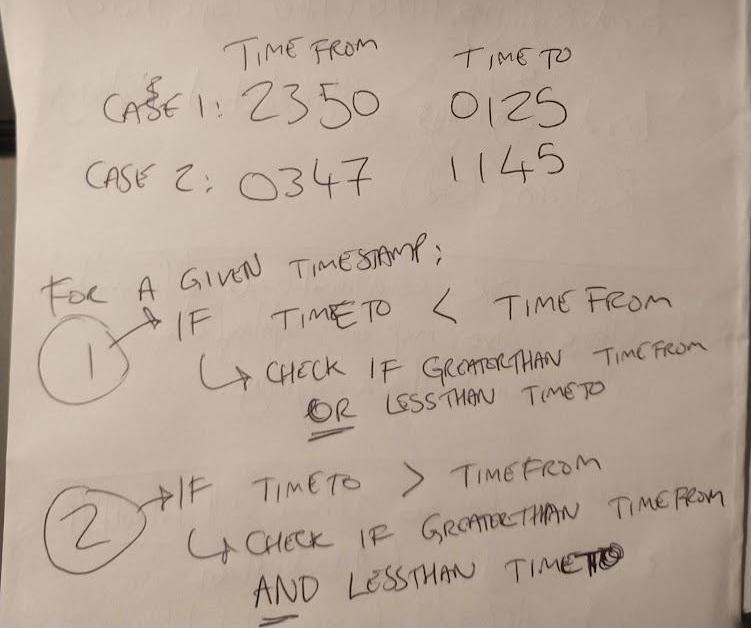 TIME FROM TIME TO
CASE 1: 2350 0125
CASE 2: 0347 1145
FOR A GIVEN TIMESTAMP;
1 → IF TIMETO < TIME FROM
↳ CHECK IF GREATERTHAN TIMEFROM
OR LESSTHAN TIMETO
2 → IF TIMETO > TIMEFROM
↳ CHECK IF GREATERTHAN TIMEFROM
AND LESSTHAN TIMETO